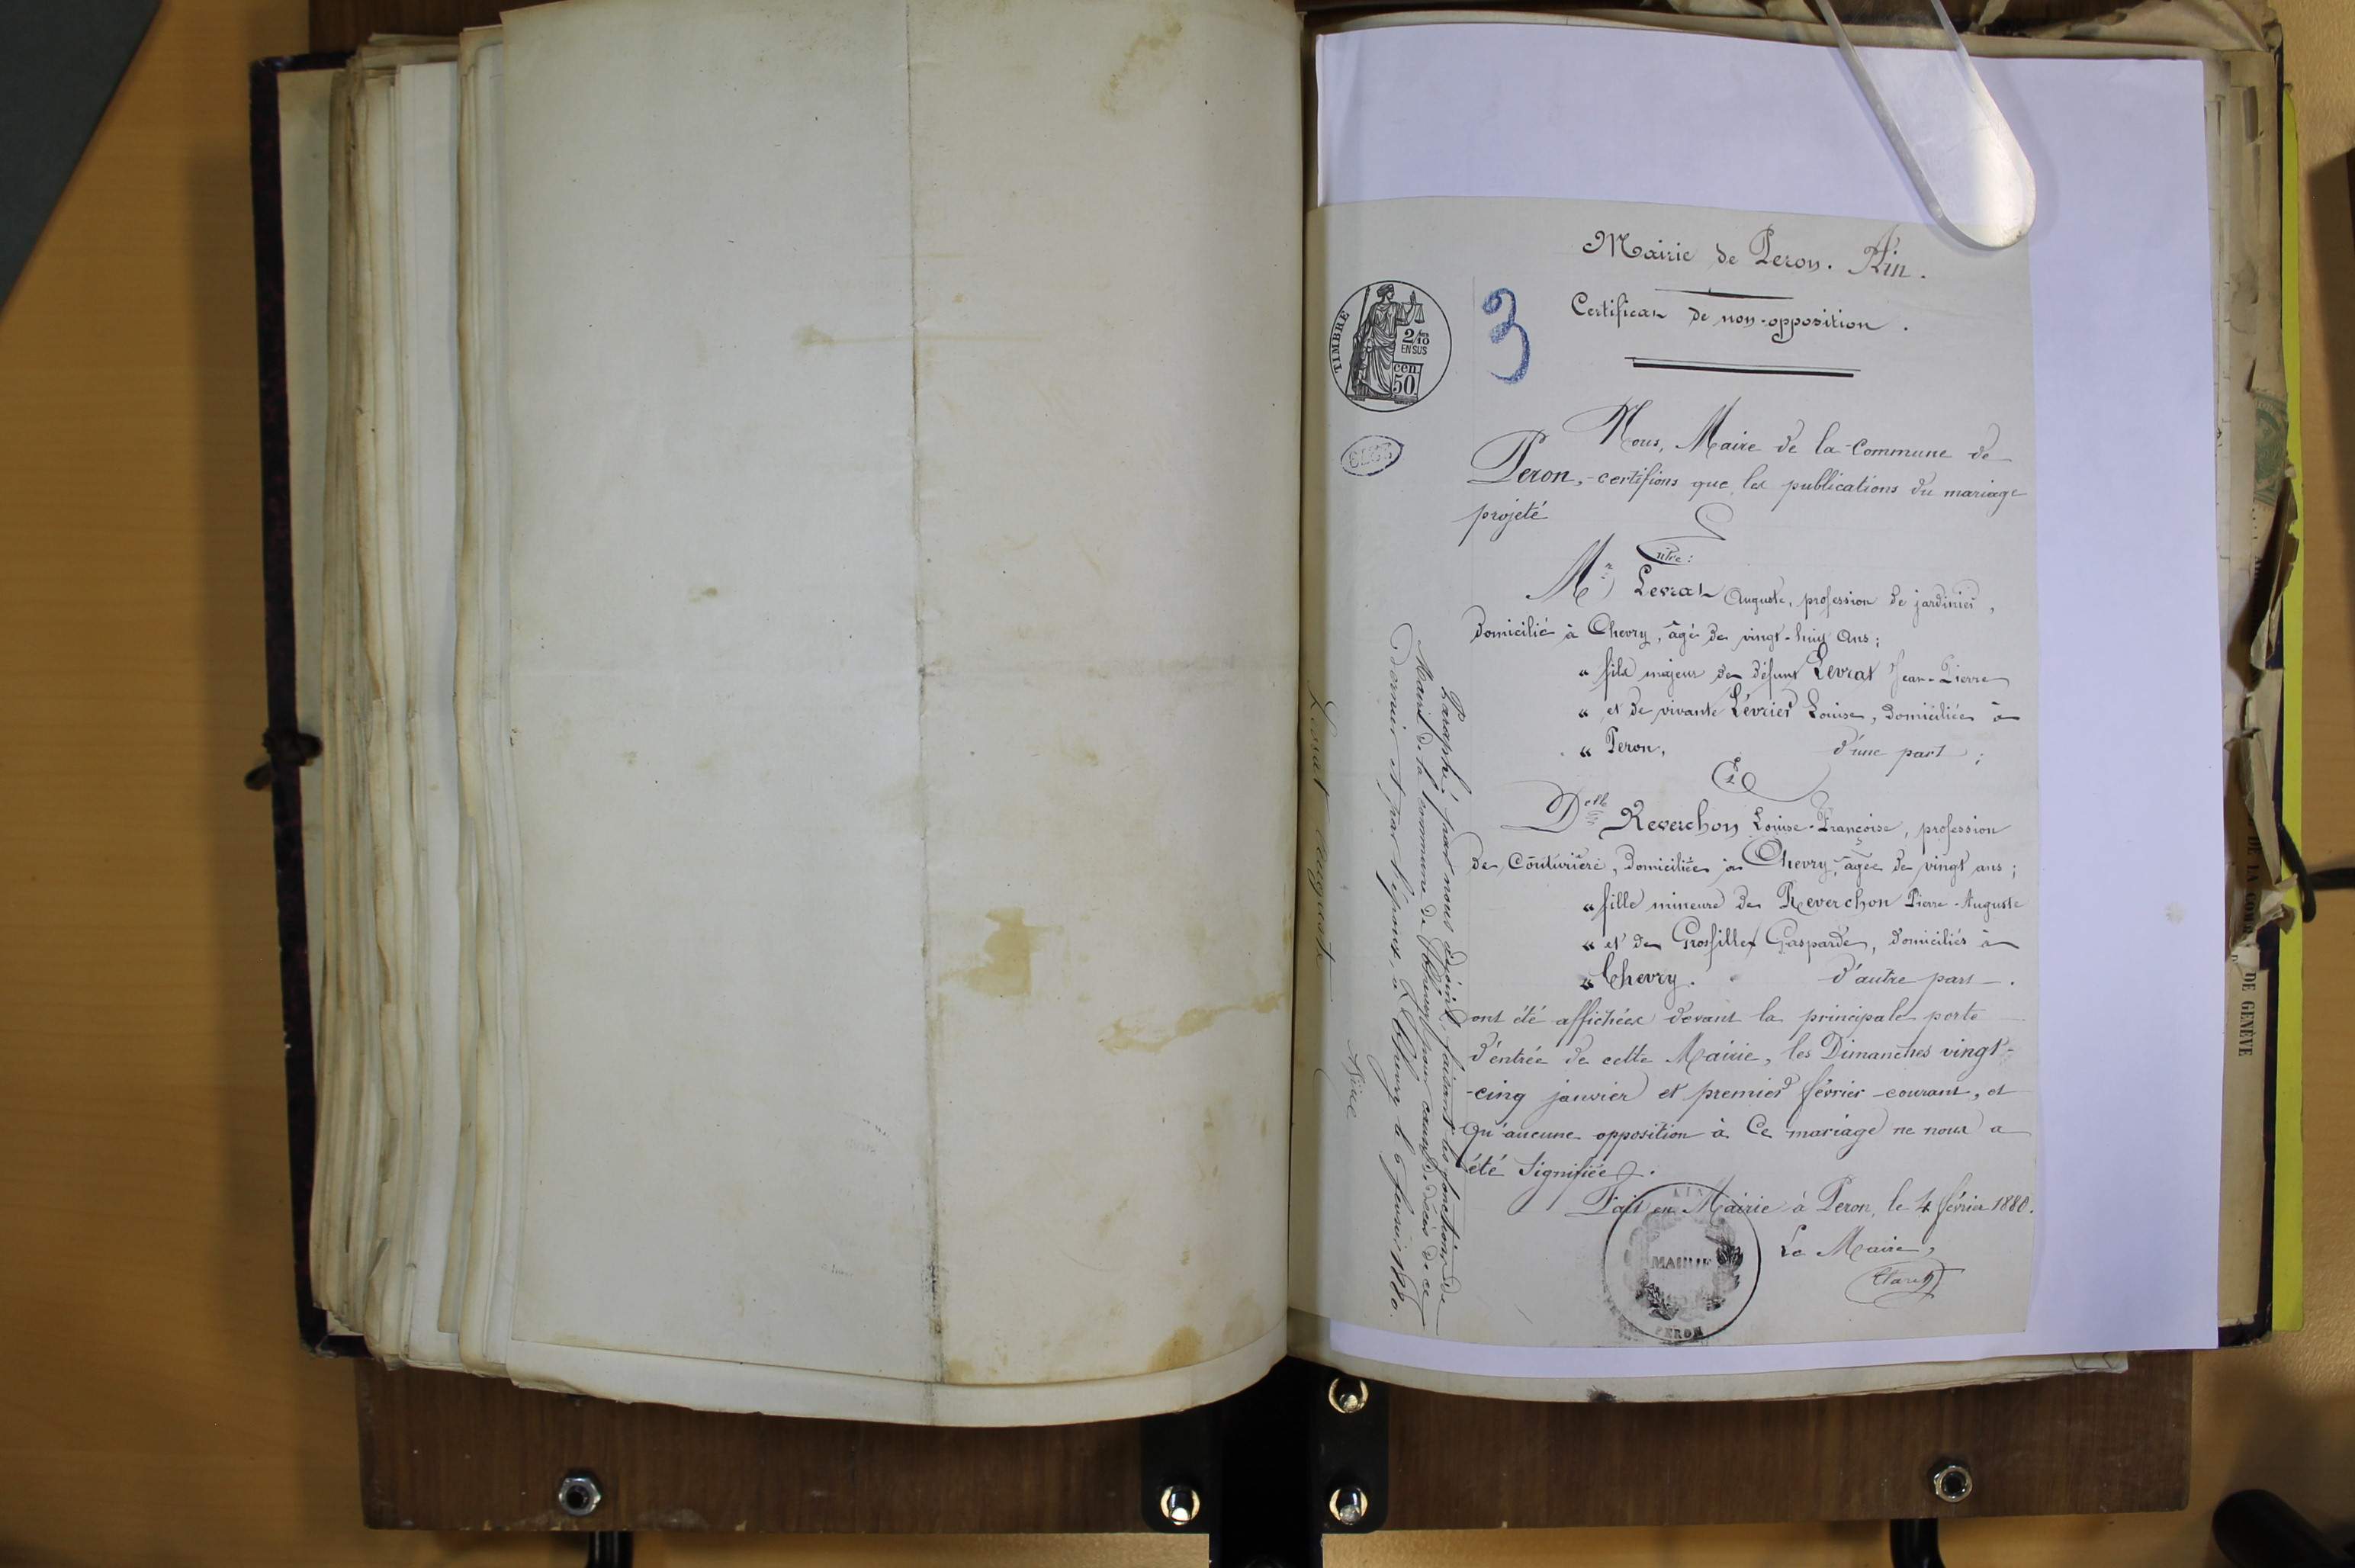 Mairie de Peron. Ain.
Certificat de non-opposition.
3
TIMBRE
2/10
EN SUS
cen.
50
Nous, Maire de la Commune de
Peron, certifions que les publications du mariage
projeté
Entre:
Mr Levrat Auguste, profession de jardinier,
domicilié à Chevry, âgé de vingt-huit ans;
" fils majeur de défunt Levrat Jean-Pierre
" et de vivante Lévrier Louise, domiciliée à
" Peron, d'une part;
Et
Delle Reverchon Louise-Françoise, profession
de Couturière, domiciliée à Chevry, âgée de vingt ans;
" fille mineure de Reverchon Pierre-Auguste
" et de Grosfillex Gasparde, domiciliés à
" Chevry. d'autre part.
ont été affichées devant la principale porte
d'entrée de cette Mairie, les Dimanches vingt-
-cinq janvier et premier février courant, et
qu'aucune opposition à ce mariage ne nous a
été signifiée.
Fait en Mairie à Peron, le 4 février 1880.
Le Maire,
AIN
MAIRIE
PERON
Paraphé par nous adjoint faisant les fonctions de
Maire de la Commune de Chevry pour cause de décès de ce
dernier et par l'époux, à Chevry le 6 février 1880.
Levrat Auguste
DE GENÈVE